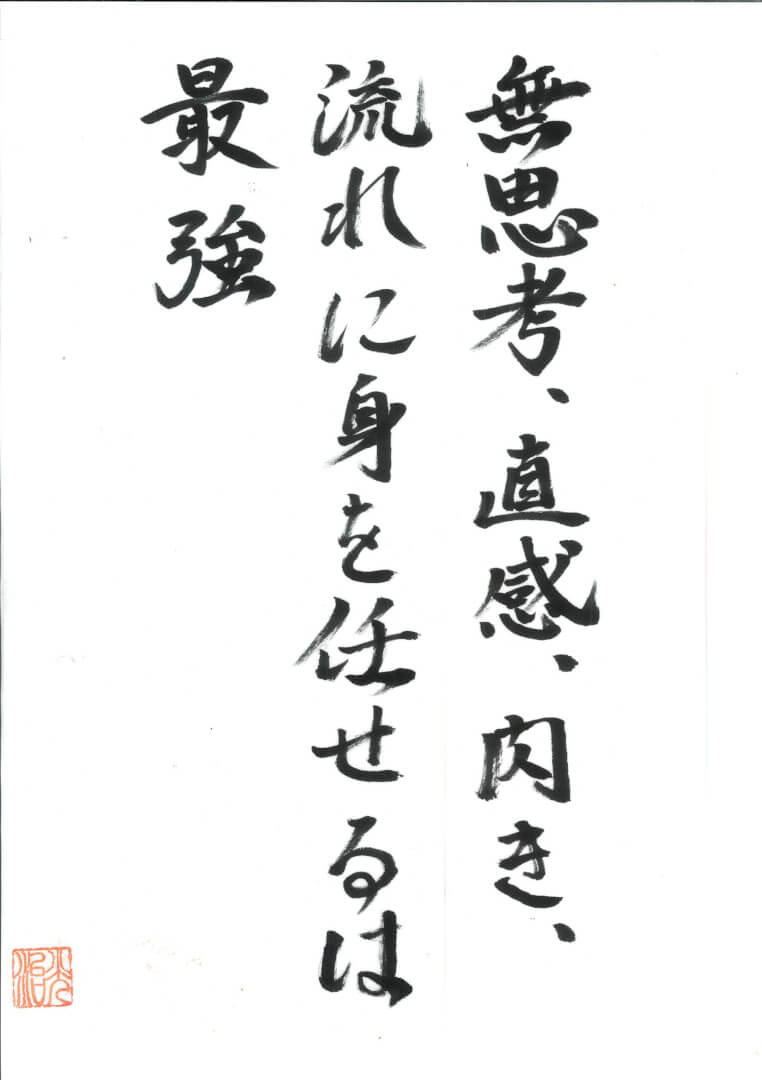 無思考、直感、閃き、
流れに身を任せるは
最強